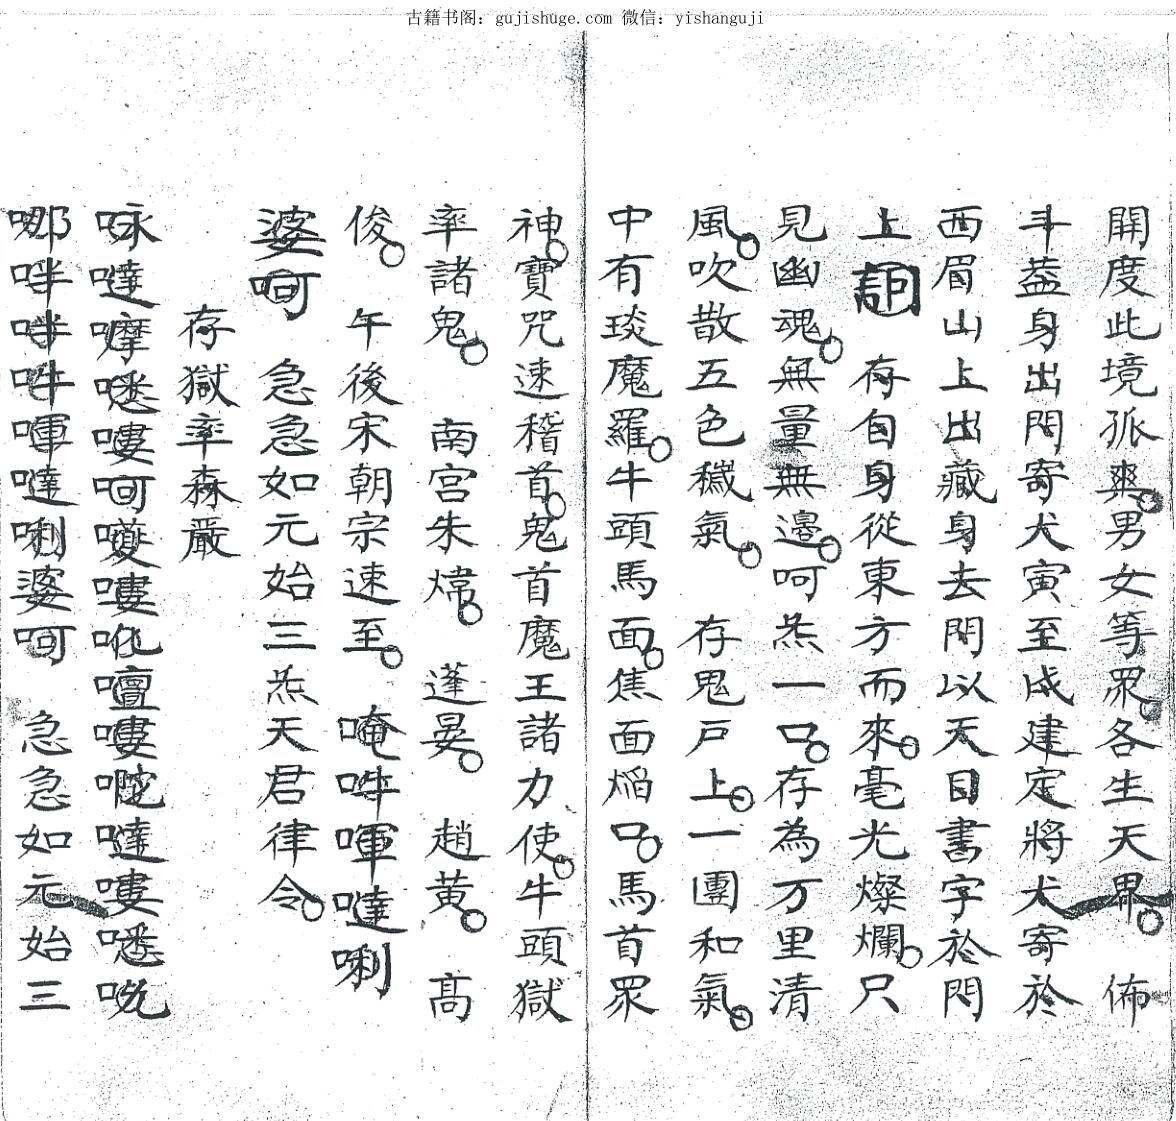 古籍书阁：gujishuge.com 微信：yishanguji
開度此境孤爽男女等眾各生天界　佈
斗葢身出閇寄犬寅至戍建定將犬寄於
西眉山上出藏身去閇以天目書字於閇
上　存自身從東方而來毫光燦爛只
見幽魂無量無邊呵炁一口存為万里清
風吹散五色穢氣　存鬼戸上一團和氣
中有琰魔羅牛頭馬面焦面焰口馬首眾
神寶咒速稽首鬼首魔王諸力使牛頭獄
率諸鬼　南宮朱煒　蓬晏　趙黃　髙
俊　午後宋朝宗速至　唵吽㖶噠唎
婆呵　急急如元始三炁天君律令
存獄率森嚴
咏噠嘜嘍呵嘍嘍噠嘍
哪吽㖶噠唎婆呵　急急如元始三